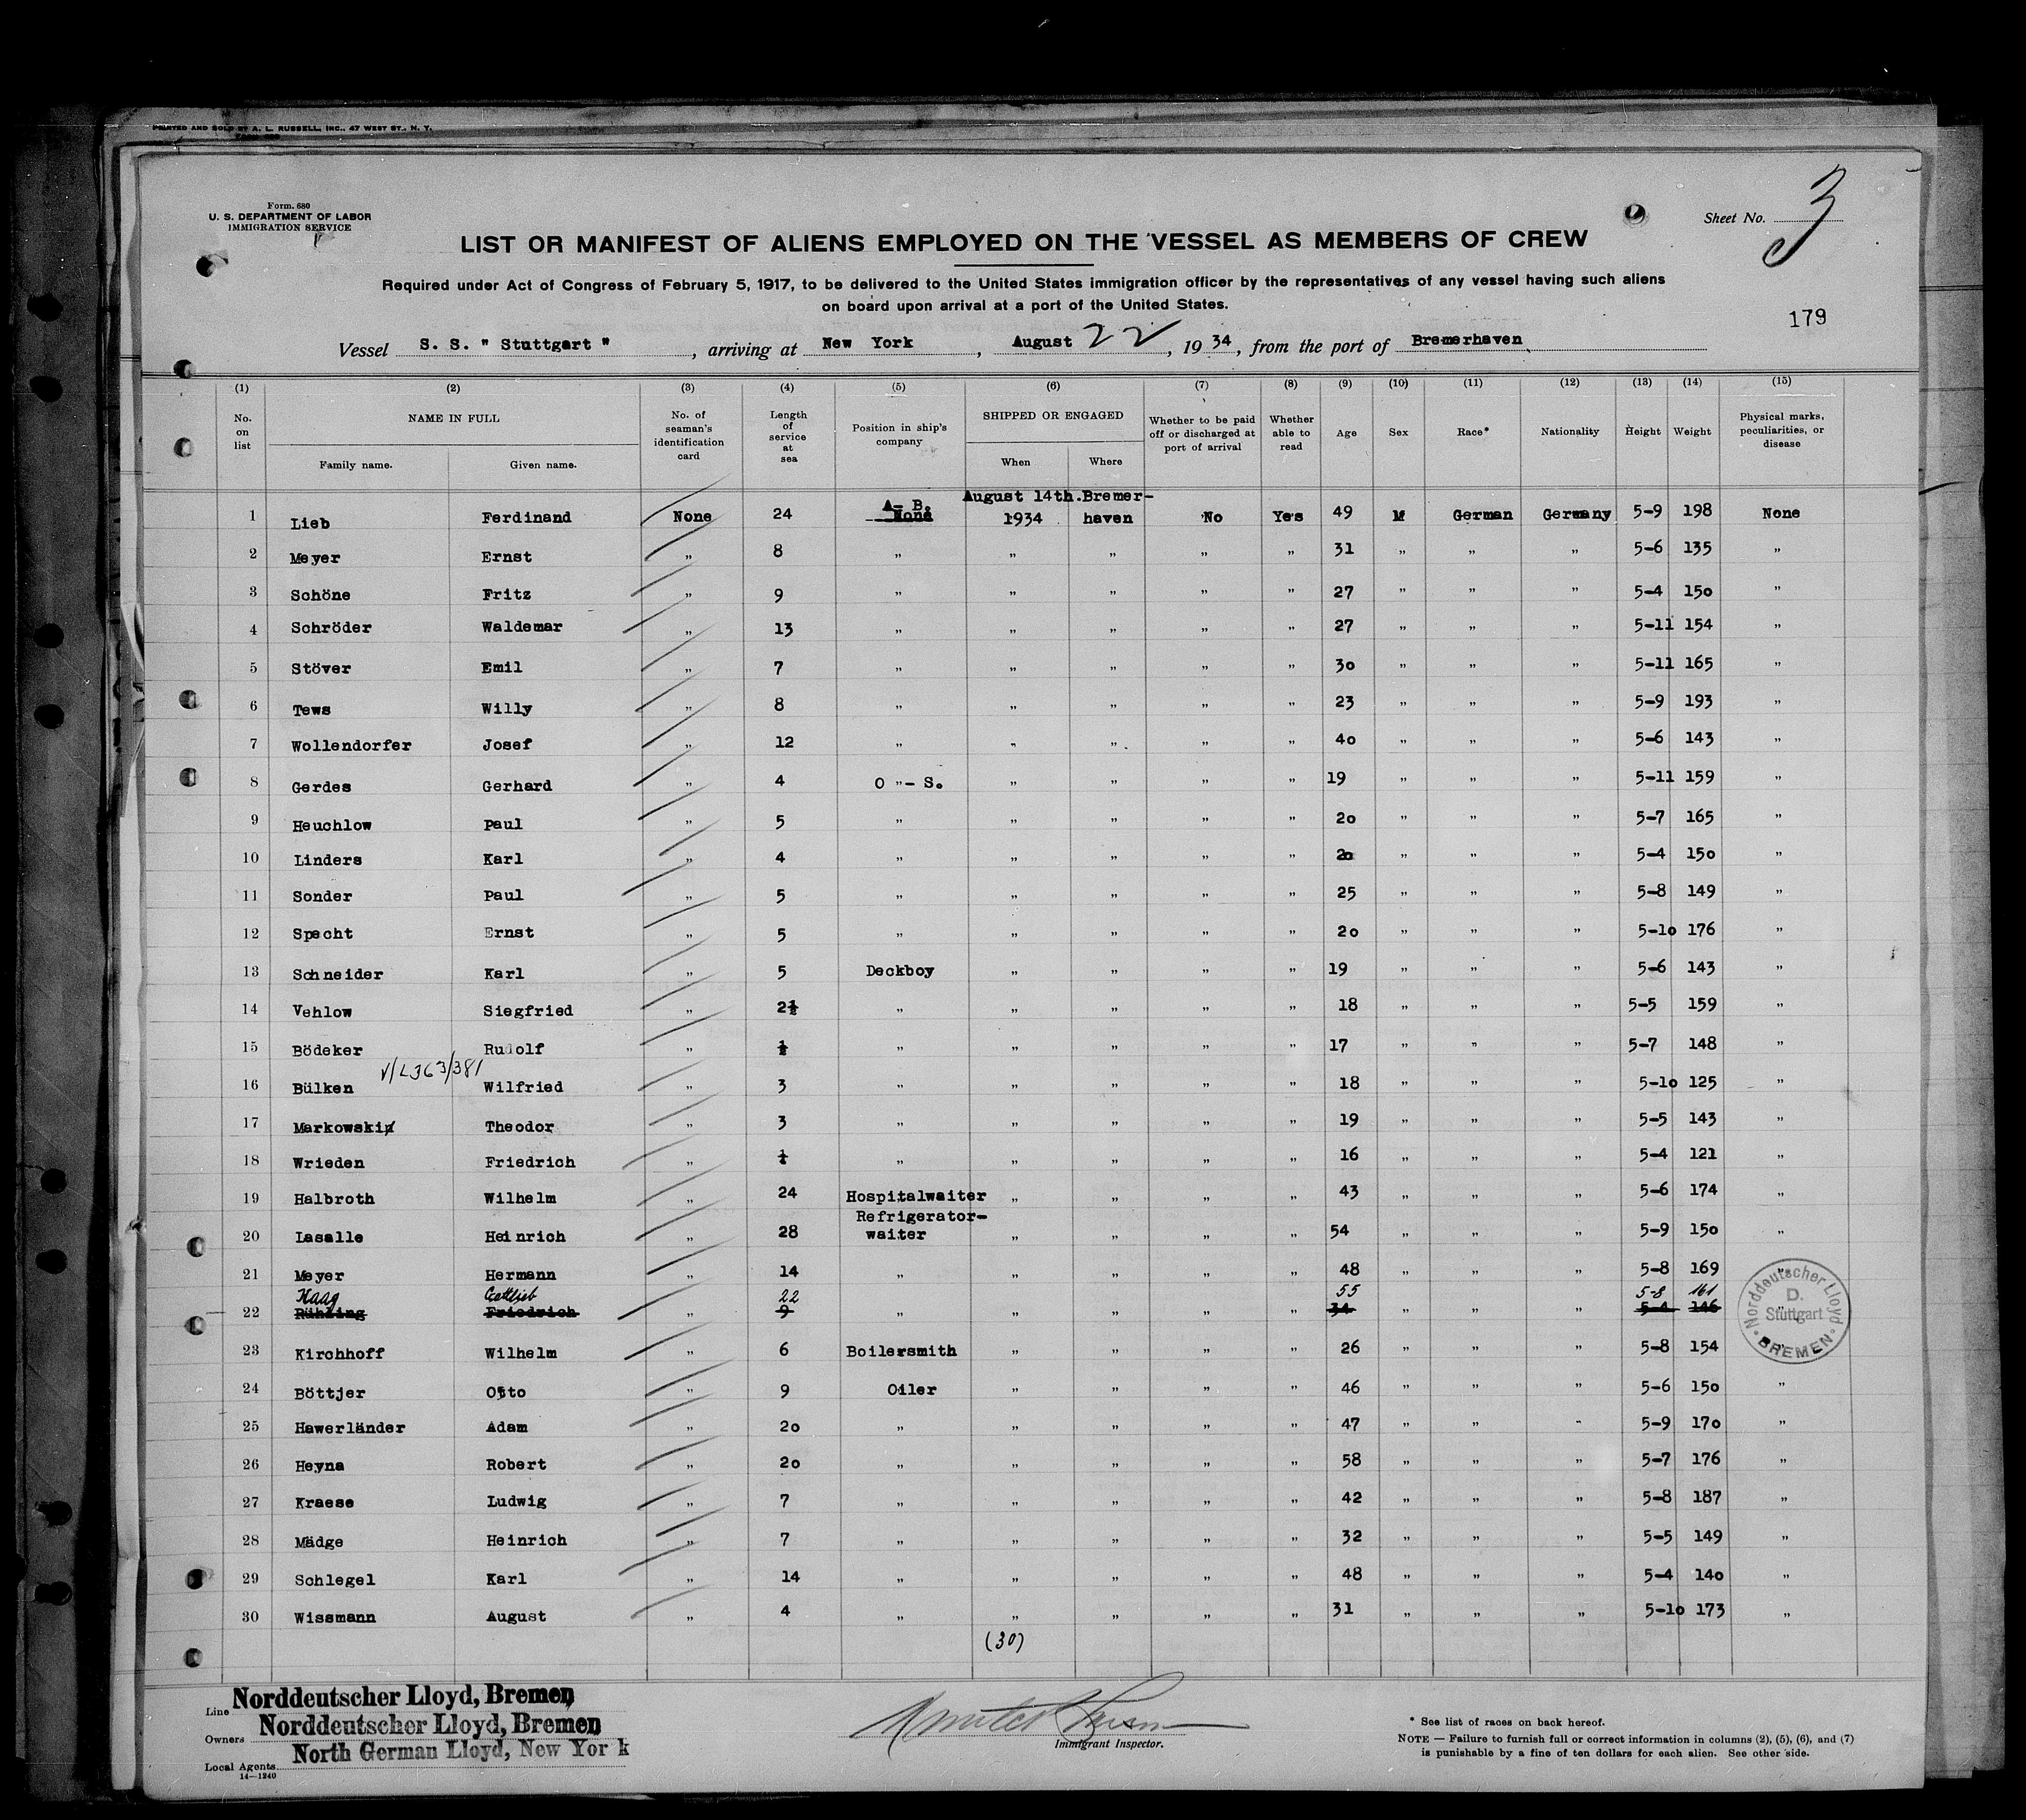 PRINTED AND SOLD BY A. L. RUSSELL, INC., 47 WEST ST., N. Y.
Form. 680
U. S. DEPARTMENT OF LABOR
IMMIGRATION SERVICE
Sheet No. 3
LIST OR MANIFEST OF ALIENS EMPLOYED ON THE VESSEL AS MEMBERS OF CREW
Required under Act of Congress of February 5, 1917, to be delivered to the United States immigration officer by the representatives of any vessel having such aliens
on board upon arrival at a port of the United States.
179
Vessel S. S. " Stuttgart " , arriving at New York , August 22 , 19 34, from the port of Bremerhaven
(1) (2) (3) (4) (5) (6) (7) (8) (9) (10) (11) (12) (13) (14) (15)
No. on list NAME IN FULL Family name. Given name. No. of seaman's identification card Length of service at sea Position in ship's company SHIPPED OR ENGAGED When Where Whether to be paid off or discharged at port of arrival Whether able to read Age Sex Race* Nationality Height Weight Physical marks, peculiarities, or disease
1 Lieb Ferdinand None 24 A- B. None August 14th 1934 Bremer-haven No Yes 49 M German Germany 5-9 198 None
2 Meyer Ernst " 8 " " " " " 31 " " " 5-6 135 "
3 Schöne Fritz " 9 " " " " " 27 " " " 5-4 150 "
4 Schröder Waldemar " 13 " " " " " 27 " " " 5-11 154 "
5 Stöver Emil " 7 " " " " " 30 " " " 5-11 165 "
6 Tews Willy " 8 " " " " " 23 " " " 5-9 193 "
7 Wollendorfer Josef " 12 " " " " " 40 " " " 5-6 143 "
8 Gerdes Gerhard " 4 O "- S. " " " " 19 " " " 5-11 159 "
9 Heuchlow Paul " 5 " " " " " 20 " " " 5-7 165 "
10 Linders Karl " 4 " " " " " 20 " " " 5-4 150 "
11 Sonder Paul " 5 " " " " " 25 " " " 5-8 149 "
12 Specht Ernst " 5 " " " " " 20 " " " 5-10 176 "
13 Schneider Karl " 5 Deckboy " " " " 19 " " " 5-6 143 "
14 Vehlow Siegfried " 2½ " " " " " 18 " " " 5-5 159 "
15 Bödeker Rudolf " ½ " " " " " 17 " " " 5-7 148 "
V/L363/381
16 Bülken Wilfried " 3 " " " " " 18 " " " 5-10 125 "
17 Markowskin Theodor " 3 " " " " " 19 " " " 5-5 143 "
18 Wrieden Friedrich " " " " " " 16 " " " 5-4 121 "
19 Halbroth Wilhelm " 24 Hospitalwaiter " " " " 43 " " " 5-6 174 "
20 Lasalle Heinrich " 28 Refrigerator-waiter " " " " 54 " " " 5-9 150 "
21 Meyer Hermann " 14 " " " " " 48 " " " 5-8 169 "
Haag Gottlieb 22 55 5-8 161
22 Rühling Friedrich " 9 " " " " " 34 " " " 5-4 146 "
23 Kirchhoff Wilhelm " 6 Boilersmith " " " " 26 " " " 5-8 154 "
24 Böttjer Otto " 9 Oiler " " " " 46 " " " 5-6 150 "
25 Hawerländer Adam " 20 " " " " " 47 " " " 5-9 170 "
26 Heyna Robert " 20 " " " " " 58 " " " 5-7 176 "
27 Kraese Ludwig " 7 " " " " " 42 " " " 5-8 187 "
28 Mädge Heinrich " 7 " " " " " 32 " " " 5-5 149 "
29 Schlegel Karl " 14 " " " " " 48 " " " 5-4 140 "
30 Wissmann August " 4 " " " " " 31 " " " 5-10 173 "
(30)
Norddeutscher Lloyd
D. Stuttgart
BREMEN
Line Norddeutscher Lloyd, Bremen
Owners Norddeutscher Lloyd, Bremen
Local Agents North German Lloyd, New York
14—1240
Immigrant Inspector.
* See list of races on back hereof.
NOTE — Failure to furnish full or correct information in columns (2), (5), (6), and (7)
is punishable by a fine of ten dollars for each alien. See other side.